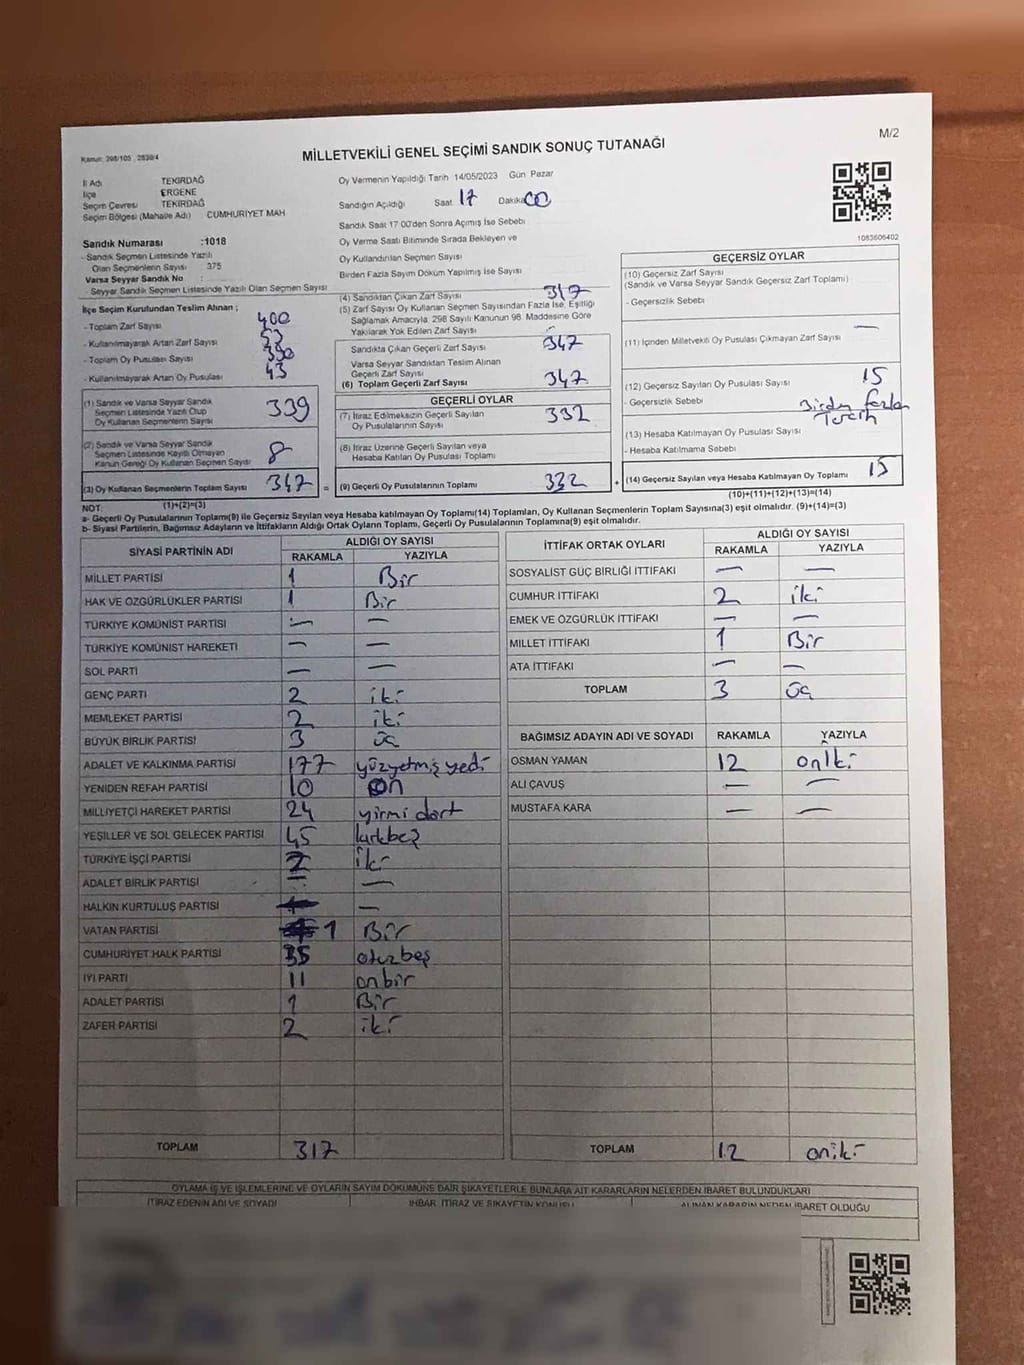 M/2
Kanun: 298/105 , 2839/4
MİLLETVEKİLİ GENEL SEÇİMİ SANDIK SONUÇ TUTANAĞI
İl Adı TEKİRDAĞ
İlçe ERGENE
Seçim Çevresi TEKİRDAĞ
Seçim Bölgesi (Mahalle Adı) CUMHURİYET MAH
Oy Vermenin Yapıldığı Tarih 14/05/2023 Gün Pazar
Sandığın Açıldığı Saat 17 Dakika 00
Sandık Saat 17:00'den Sonra Açmış İse Sebebi
Oy Verme Saati Bitiminde Sırada Bekleyen ve
Oy Kullandırılan Seçmen Sayısı
Birden Fazla Sayım Döküm Yapılmış İse Sayısı
1083606402
Sandık Numarası :1018
- Sandık Seçmen Listesinde Yazılı
Olan Seçmenlerin Sayısı 375
Varsa Seyyar Sandık No :
- Seyyar Sandık Seçmen Listesinde Yazılı Olan Seçmen Sayısı
İlçe Seçim Kurulundan Teslim Alınan ;
- Toplam Zarf Sayısı 400
- Kullanılmayarak Artan Zarf Sayısı 53
- Toplam Oy Pusulası Sayısı 390
- Kullanılmayarak Artan Oy Pusulası 43
(1) Sandık ve Varsa Seyyar Sandık
Seçmen Listesinde Yazılı Olup
Oy Kullanan Seçmenlerin Sayısı 339
(2) Sandık ve Varsa Seyyar Sandık
Seçmen Listesinde Kayıtlı Olmayan
Kanun Gereği Oy Kullanan Seçmen Sayısı 8
(3) Oy Kullanan Seçmenlerin Toplam Sayısı 347 =
(1)+(2)=(3)
(4) Sandıktan Çıkan Zarf Sayısı 347
(5) Zarf Sayısı Oy Kullanan Seçmen Sayısından Fazla İse, Eşitliği
Sağlamak Amacıyla, 298 Sayılı Kanunun 98. Maddesine Göre
Yakılarak Yok Edilen Zarf Sayısı –
Sandıkta Çıkan Geçerli Zarf Sayısı 347
Varsa Seyyar Sandıktan Teslim Alınan
Geçerli Zarf Sayısı
(6) Toplam Geçerli Zarf Sayısı 347
GEÇERLİ OYLAR
(7) İtiraz Edilmeksizin Geçerli Sayılan
Oy Pusulalarının Sayısı 332
(8) İtiraz Üzerine Geçerli Sayılan veya
Hesaba Katılan Oy Pusulası Toplamı
(9) Geçerli Oy Pusulalarının Toplamı 332 +
GEÇERSİZ OYLAR
(10) Geçersiz Zarf Sayısı
(Sandık ve Varsa Seyyar Sandık Geçersiz Zarf Toplamı)
- Geçersizlik Sebebi
(11) İçinden Milletvekili Oy Pusulası Çıkmayan Zarf Sayısı —
(12) Geçersiz Sayılan Oy Pusulası Sayısı 15
- Geçersizlik Sebebi Birden fazla
Tercih
(13) Hesaba Katılmayan Oy Pusulası Sayısı
- Hesaba Katılmama Sebebi
(14) Geçersiz Sayılan veya Hesaba Katılmayan Oy Toplamı 15
(10)+(11)+(12)+(13)=(14)
NOT:
a- Geçerli Oy Pusulalarının Toplamı(9) ile Geçersiz Sayılan veya Hesaba Katılmayan Oy Toplamı(14) Toplamları, Oy Kullanan Seçmenlerin Toplam Sayısına(3) eşit olmalıdır. (9)+(14)=(3)
b- Siyasi Partilerin, Bağımsız Adayların ve İttifakların Aldığı Ortak Oyların Toplamı, Geçerli Oy Pusulalarının Toplamına(9) eşit olmalıdır.
SİYASİ PARTİNİN ADI ALDIĞI OY SAYISI
RAKAMLA YAZIYLA
MİLLET PARTİSİ 1 Bir
HAK VE ÖZGÜRLÜKLER PARTİSİ 1 Bir
TÜRKİYE KOMÜNİST PARTİSİ — —
TÜRKİYE KOMÜNİST HAREKETİ — —
SOL PARTİ — —
GENÇ PARTİ 2 iki
MEMLEKET PARTİSİ 2 iki
BÜYÜK BİRLİK PARTİSİ 3 üç
ADALET VE KALKINMA PARTİSİ 177 yüzyetmiş yedi
YENİDEN REFAH PARTİSİ 10 on
MİLLİYETÇİ HAREKET PARTİSİ 24 yirmi dört
YEŞİLLER VE SOL GELECEK PARTİSİ 45 kırkbeş
TÜRKİYE İŞÇİ PARTİSİ 2 iki
ADALET BİRLİK PARTİSİ — —
HALKIN KURTULUŞ PARTİSİ — —
VATAN PARTİSİ 1 Bir
CUMHURİYET HALK PARTİSİ 35 otuzbeş
İYİ PARTİ 11 onbir
ADALET PARTİSİ 1 Bir
ZAFER PARTİSİ 2 iki
TOPLAM 317
İTTİFAK ORTAK OYLARI ALDIĞI OY SAYISI
RAKAMLA YAZIYLA
SOSYALİST GÜÇ BİRLİĞİ İTTİFAKI — —
CUMHUR İTTİFAKI 2 iki
EMEK VE ÖZGÜRLÜK İTTİFAKI — —
MİLLET İTTİFAKI 1 Bir
ATA İTTİFAKI — —
TOPLAM 3 üç
BAĞIMSIZ ADAYIN ADI VE SOYADI RAKAMLA YAZIYLA
OSMAN YAMAN 12 oniki
ALİ ÇAVUŞ — —
MUSTAFA KARA — —
TOPLAM 12 oniki
OYLAMA İŞ VE İŞLEMLERİNE VE OYLARIN SAYIM DÖKÜMÜNE DAİR ŞİKAYETLERLE BUNLARA AİT KARARLARIN NELERDEN İBARET BULUNDUKLARI
İTİRAZ EDENİN ADI VE SOYADI İHBAR, İTİRAZ VE ŞİKAYETİN KONUSU ALINAN KARARIN NEDEN İBARET OLDUĞU